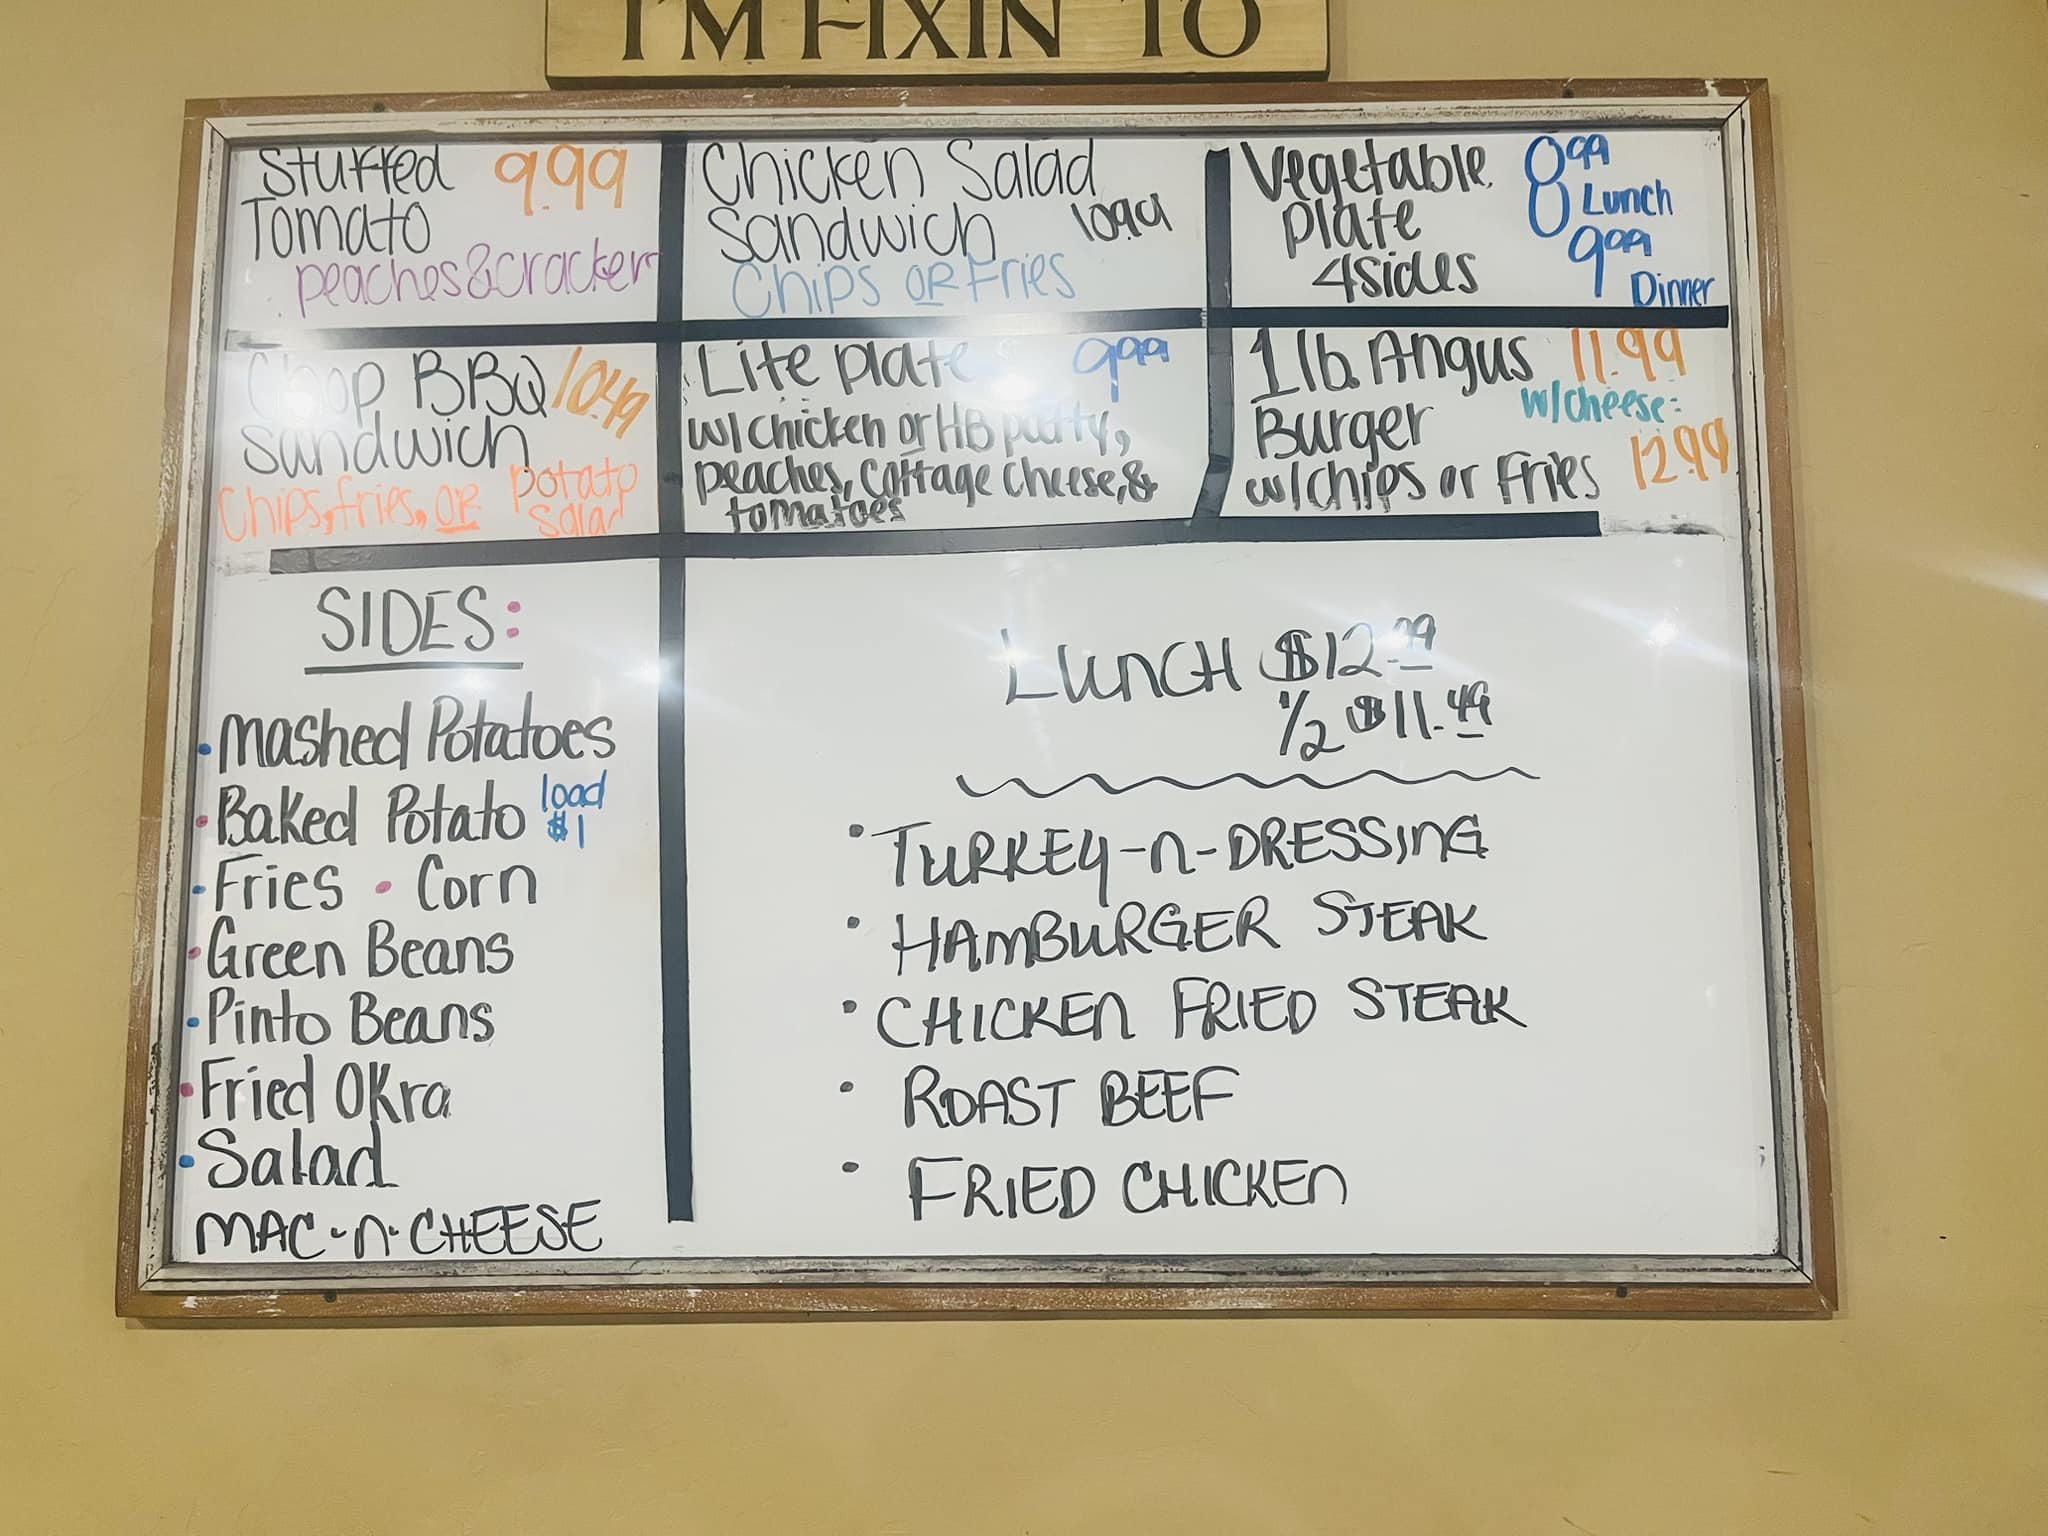 I'M FIXIN TO
Stuffed 9.99
Tomato
peaches & crackers
Chicken Salad
Sandwich 10.99
Chips OR Fries
Vegetable 8.99
plate Lunch
4 sides 9.99
Dinner
Chop BBQ 10.49
Sandwich
Chips, fries, OR potato
salad
Lite plate 9.99
w/ chicken or HB patty,
peaches, Cottage Cheese, &
tomatoes
1 lb. Angus 11.99
w/cheese:
Burger 12.99
w/chips or Fries
SIDES:
• Mashed Potatoes
• Baked Potato load
$1
• Fries • Corn
• Green Beans
• Pinto Beans
• Fried Okra
• Salad
MAC-N-CHEESE
LUNCH $12.99
1/2 $11.49
• TURKEY-N-DRESSING
• HAMBURGER STEAK
• CHICKEN FRIED STEAK
• ROAST BEEF
• FRIED CHICKEN